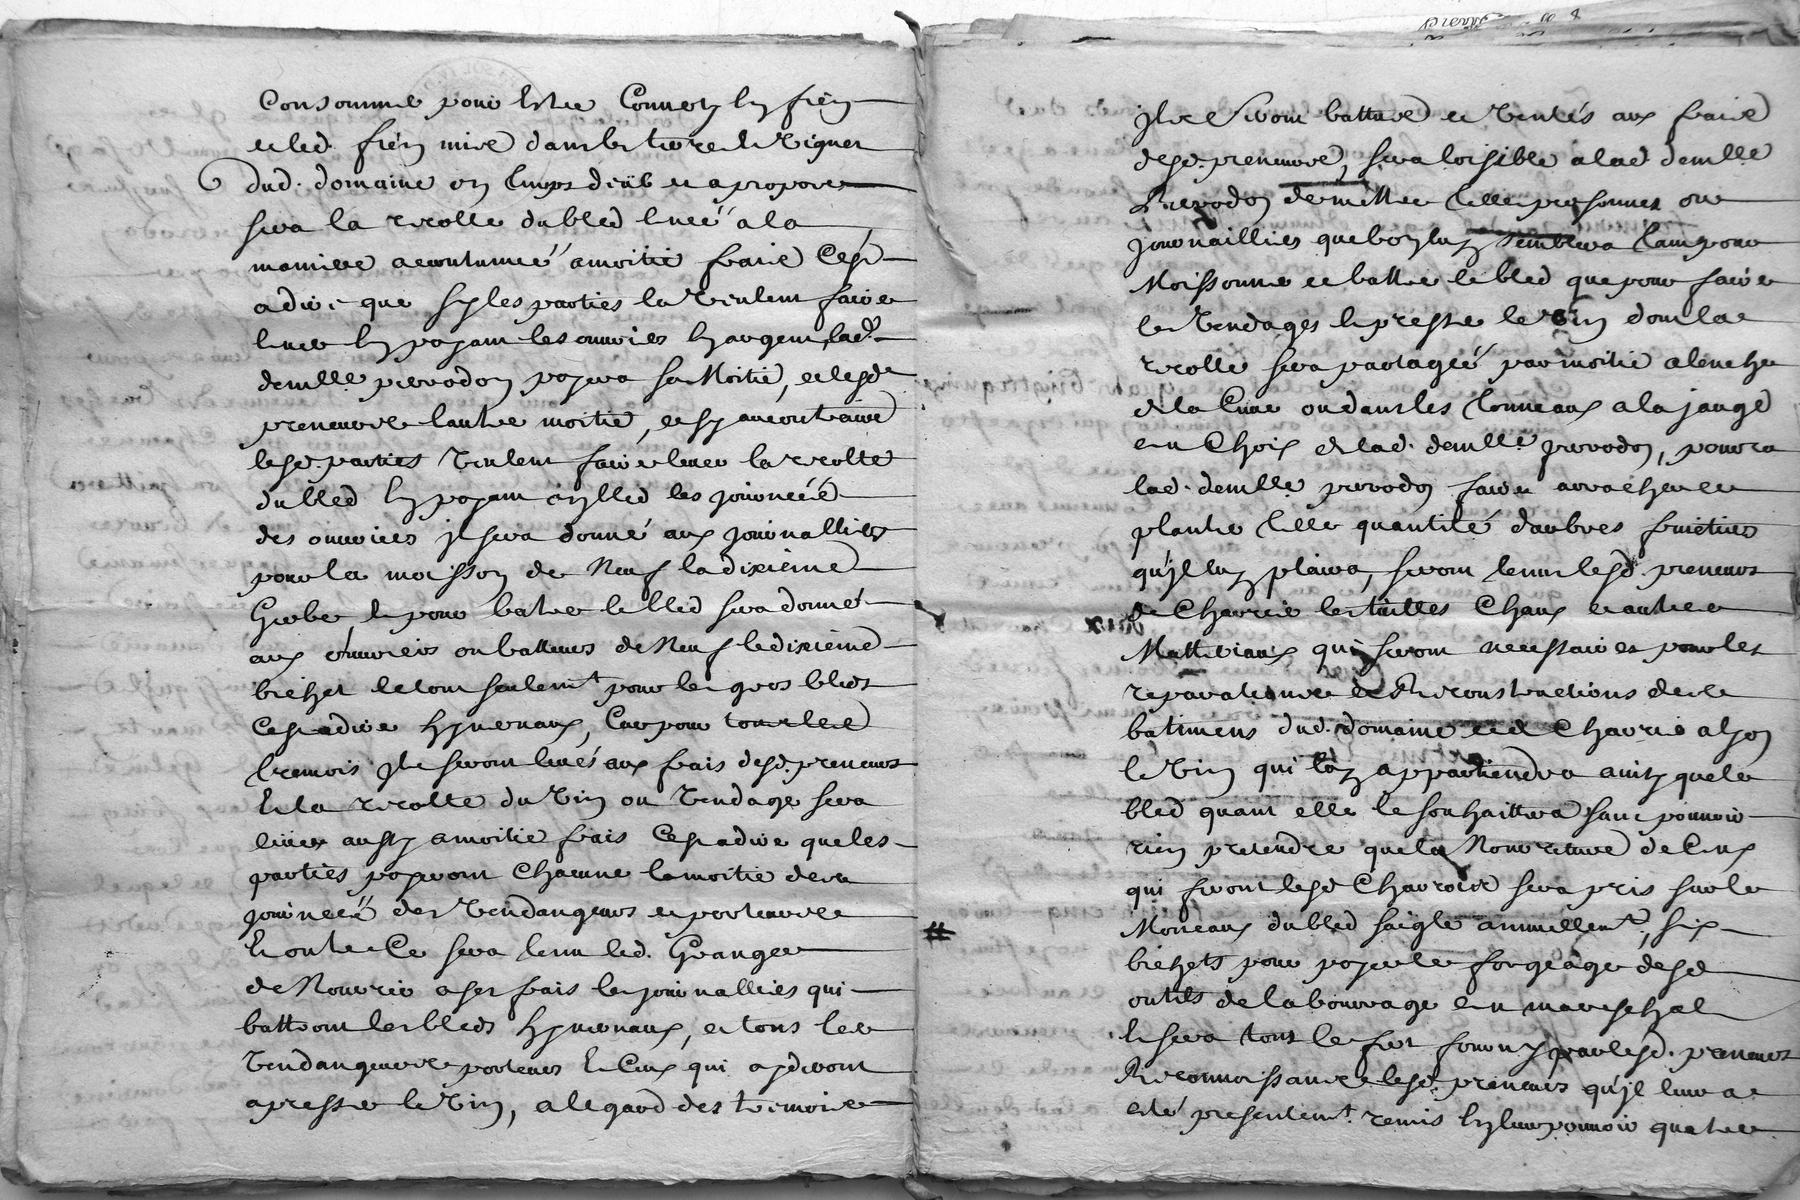 Consomme pour estre Converty en fien
et led. fien mise dans les terres et vignes
dud. domaine en temps deub et a propore
sera la recolte du bled levéé a la
maniere acoutuméé a moitie fraie Cest
a dire que sy les parties la veulent faire
lever en payant les ouvries en argent, lad.
demlle. prevodon payera sa Moitié, et lesd.
preneurre lautre moitié, et sy au contraire
lesd. parties veulent faire lever la recolte
du bled en payant en bled les journéés
des ouvriers jl sera donné aux journalliers
pour la moisson de Neuf la dixieme
Gerbe, et pour batre le bled sera donné
aux ouvriers ou batteurs de Neuf le dixieme
bichet le tout seulemt. pour les gros bleds
Cest a dire hyvernaux, Car pour tous les
tremois jls seront levés aux frais desd. preneurs
Et la recolte du vin ou vendage sera
levée aussy a moitie frais Cest a dire que les
parties payeront Chacune la moitie des
journéés des vendangeurs et porteurre
Et outre Ce sera tenu led. Granger
de Nourrir a ses frais les journalliers qui
battront les bleds hyvernaux, et tous les
vendangeurre porteurs et Ceux qui ayderont
a presser le vin, a legard des tremoise
jls seront battue et ventés aux fraie
desd. preneurre, sera loisible a lad. demlle.
Prevodon de mettre telle personnes ou
journailliers que bon luy semblera tant pour
Moissonner et battre le bled que pour faire
les vendages et presser le vin dont la
recolte sera partagéé par moitie a lanche
de la Cuve ou dans les tonneaux a la jauge
en Choix de lad. demlle. prevodon, poura
lad. demlle. prevodon faire arracher et
planter telle quantité darbres fruitiers
qu'jl luy plaira, seront tenus lesd. preneurs
de Charrier les tuilles Chaux et autres
Matteriaux qui seront necessaires pour les
reparationre et Reconstructions des
batimens dud. domaine et de Charrier a lyon
le vin qui luy appartiendra ainsy que le
bled quant elle le souhaittera sans pouvoir
rien pretendre que la Nourriture de Ceux
qui feront lesd. Charrois sera pris sur le
Monceaux du bled saigle annuellemt. six
bichets pour payer le forgeage desd.
outils de labourage en mareschal
Et sera tout le fer fourny par lesd. preneurs
Reconnoissance lesd. preneurs qu'jl leur a
esté presentemt. remis en leur pouvoir quatre